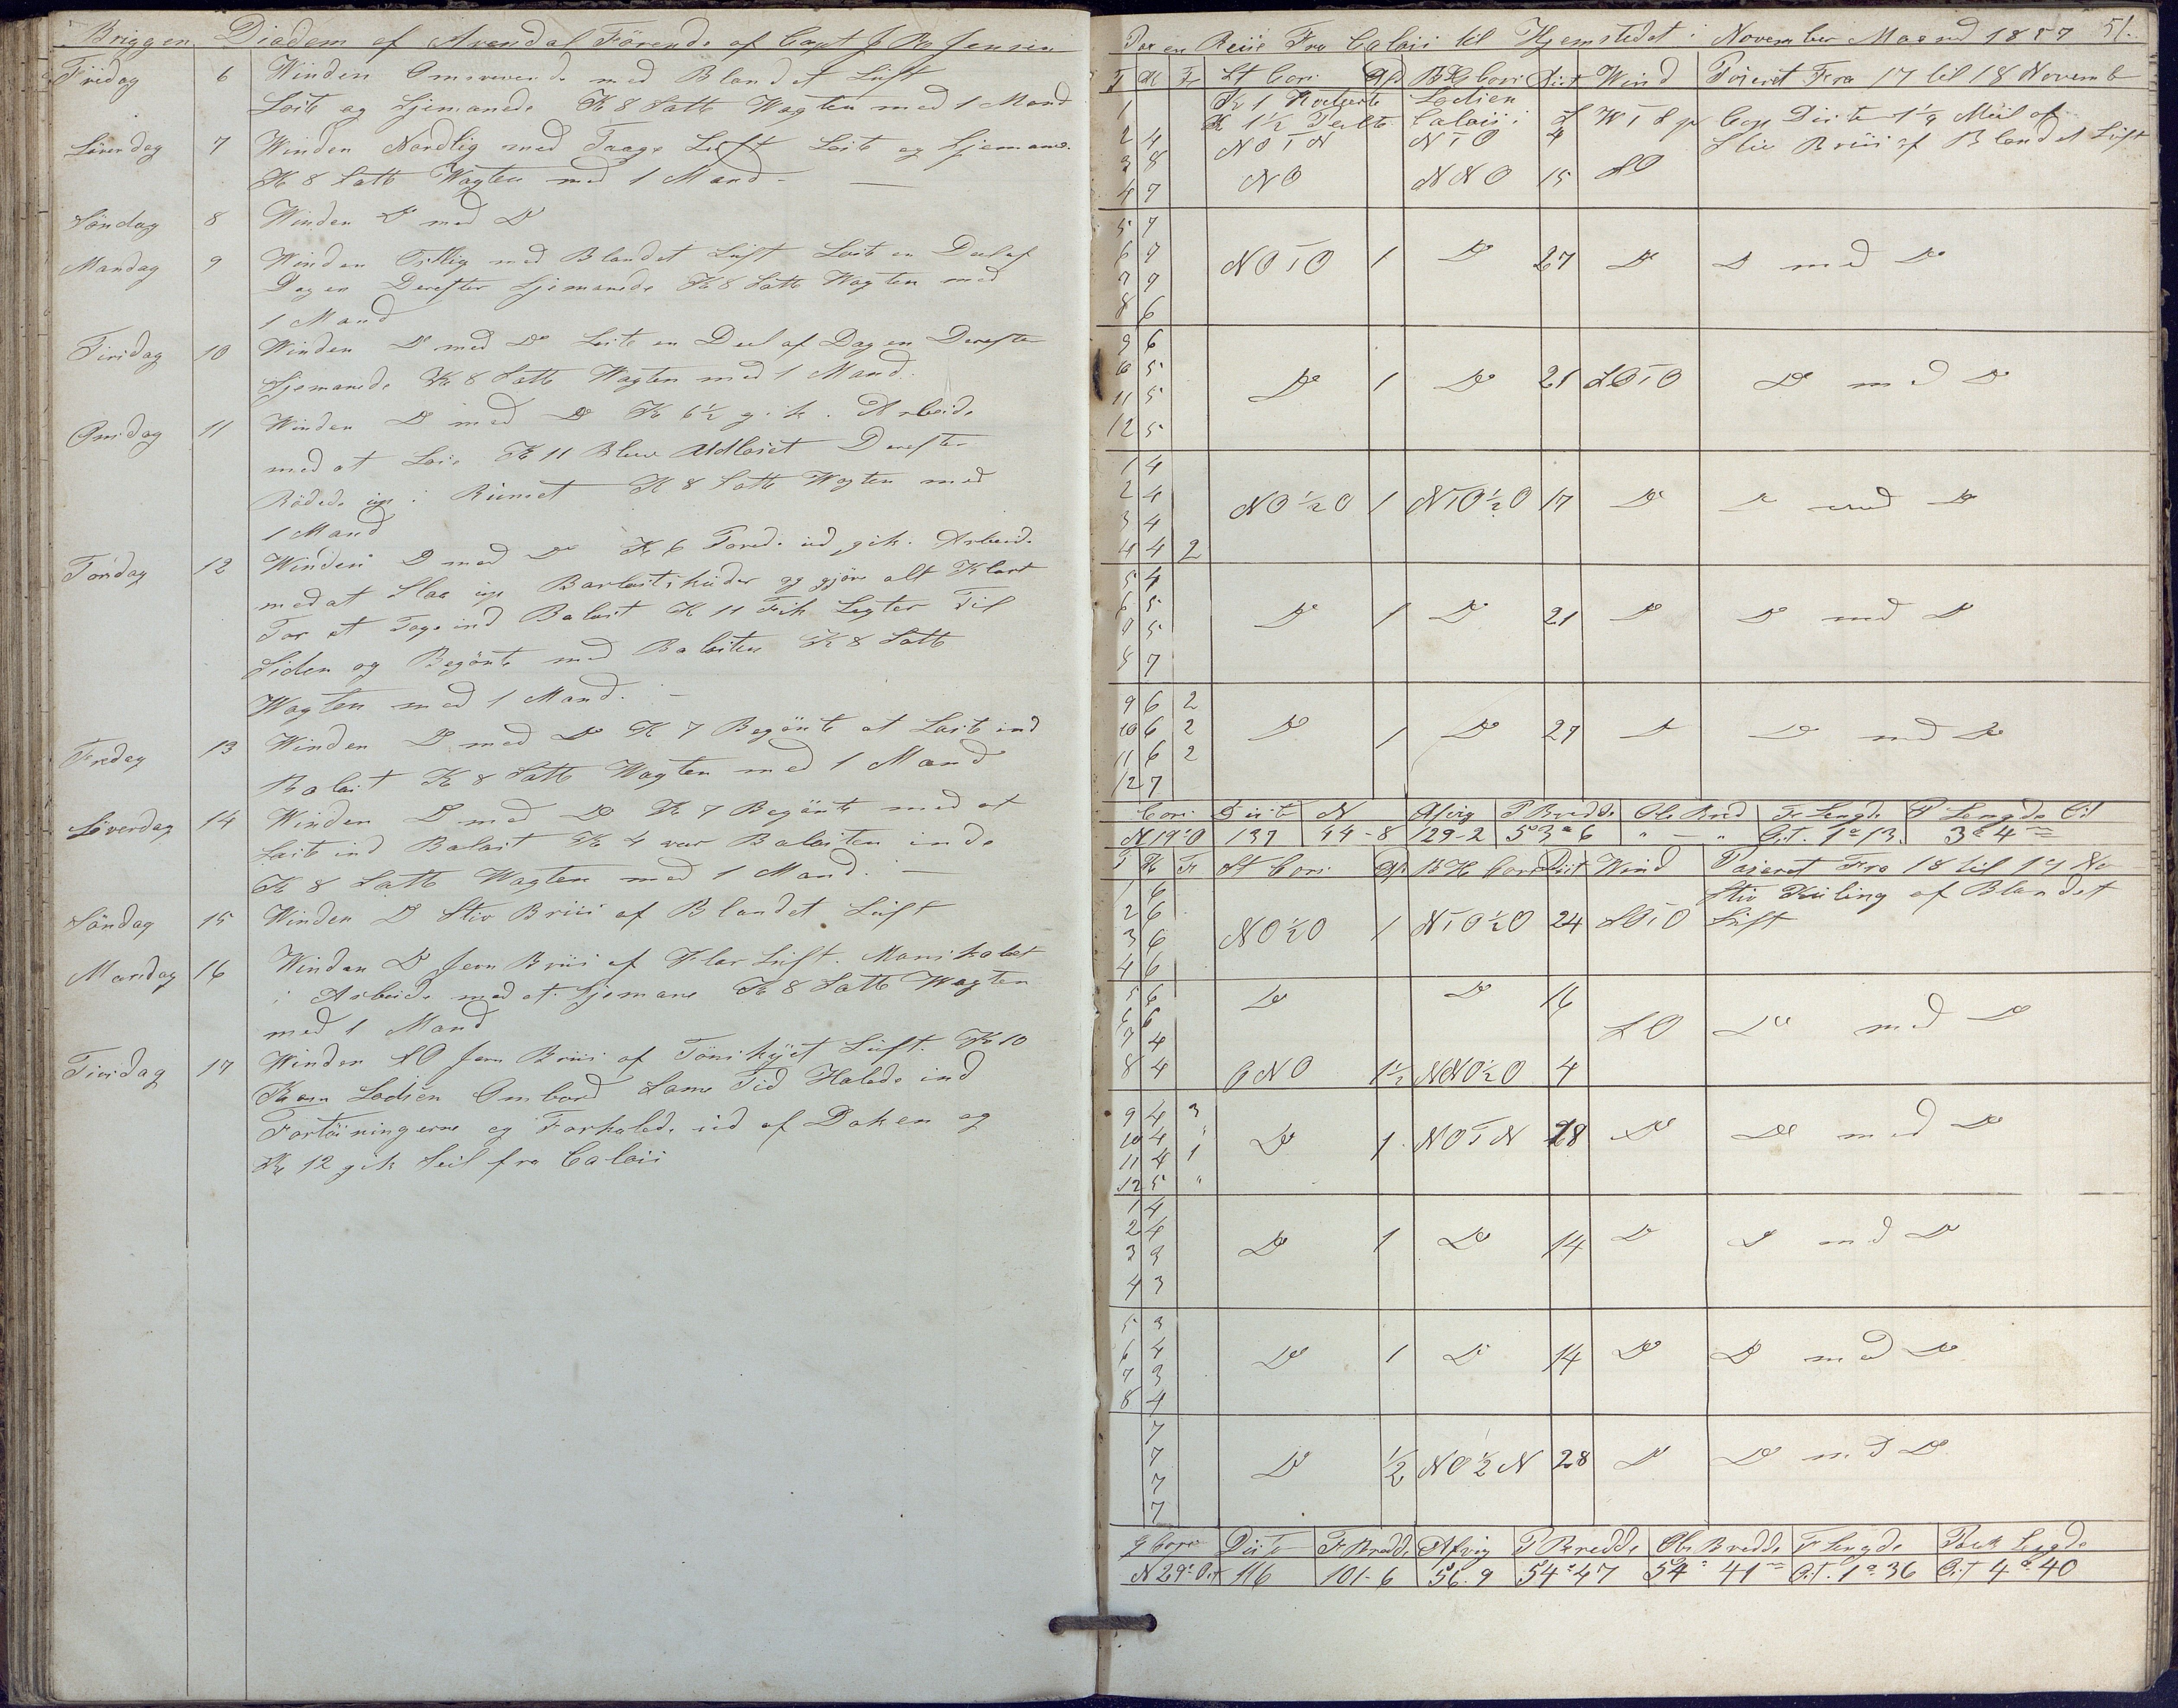 Briggen Diadem af Arendal Förende af Capt J Jensen
Fredag 6 Winden Omrerende med Blandet Luft
Loste og Sjemanede Kl 8 Satte Wagten med 1 Mand
Löverdag 7 Winden Nordlig med Taage Luft Loste og Sjemane.
Kl 8 Satte Wagten med 1 Mand —
Söndag 8 Winden Do med Do
Mandag 9 Winden Östlig med Blandet Luft Loste en Deel af
Dagen Derefter Sjemanede Kl 8 Satte Wagten med
1 Mand
Tirsdag 10 Winden Do med Do Loste en Deel af Dagen Derefter
Sjemanede Kl 8 Satte Wagten med 1 Mand.
Onsdag 11 Winden Do med Do Kl 6½ gik i Arbeide
med at Lose Kl 11 Blew Udlosset Derefter
Rödede op i Rumet Kl 8 Satte Wagten med
1 Mand
Torsdag 12 Winden Do med Do Kl 6 gik i Arbeide
med at Slaa op og gjöre alt Klart
For at Tage ind Balast Kl 11 Fik Legter Til
Siden og Begönte med Balasten Kl 8 Satte
Wagten med 1 Mand. —
Fredag 13 Winden Do med Do Kl 7 Begönte at Laste ind
Balast Kl 8 Satte Wagten med 1 Mand
Löverdag 14 Winden Do med Do Kl 7 Begönte med at
Laste ind Balast Kl 4 var Balasten inde
Kl 8 Satte Wagten med 1 Mand. —
Söndag 15 Winden Do Stiv Briis af Blandet Luft
Mandag 16 Winden Do Jevn Briis af Klar Luft. Manskabet
i Arbeide med at Sjemane Kl 8 Satte Wagten
med 1 Mand
Tirsdag 17 Winden SO Jevn Briis af Luft. Kl 10
Kom Lodsen Ombord Same Tid Halede ind
Fortöiningerne og Forhalede ud af Doken og
Kl 12 gik Seil fra Calais
Paa en Reise Fra Calais til Hjemstedet i November Maaned 1857 51.
T K Fv St Cors Afd BH Cors Dist Wind Passeret Fra 17 til 18 Novemb
1 Kl 1 Lodsen
Kl 1½ Calais i
2 4 NOTN NTO 4 Stiv Briis af Blandet Luft
3 8
4 7 NO NNO 15 SO
5 7
6 7 NOTO 1 Do 27 Do Do med Do
7 7
8 6
9 6
10 5 Do 1 Do 21 SOTO Do med Do
11 5
12 5
1 4
2 4 NO½O 1 NTO½O 17 Do Do med Do
3 4
4 4 2
5 4
6 5 Do 1 Do 21 Do Do med Do
7 5
8 7
9 6 2
10 6 2 Do 1 Do 27 Do Do med Do
11 6 2
12 7
Cors Diste N Afvig P Bredde Ob Bred Fr Lengde P Lengde Ost
N19°O 137 44-8 129-2 53°6 " — " Öst. 1°13 3°4
T K Fv St Cors Afd BH Cors Dist Wind Passeret Fra 18 til 19 No
1 6 Stiv Kuling af Blandet
2 6 NO½O 1 NTO½O 24 SOTO Luft
3 6
4 6
5 6 Do Do 16
6 6 SO Do med Do
7 4
8 4 ONO 1½ NNO½O 4
9 4 3
10 4 " Do 1 NOTN 18 Do Do med Do
11 4 1
12 5 "
1 4
2 4 Do 1 Do 14 Do Do med Do
3 3
4 3
5 3
6 4 Do 1 Do 14 Do Do med Do
7 3
8 4
7
7 Do ½ NO½N 28 Do Do med Do
7
7
g Cors Diste Fr Bredde Afvig P Bredde Ob Bredde F Lengde Paak Legde
N29°Ost 116 101-6 56.9 54°47 54°41 Öst. 1°36 Öst 4°40